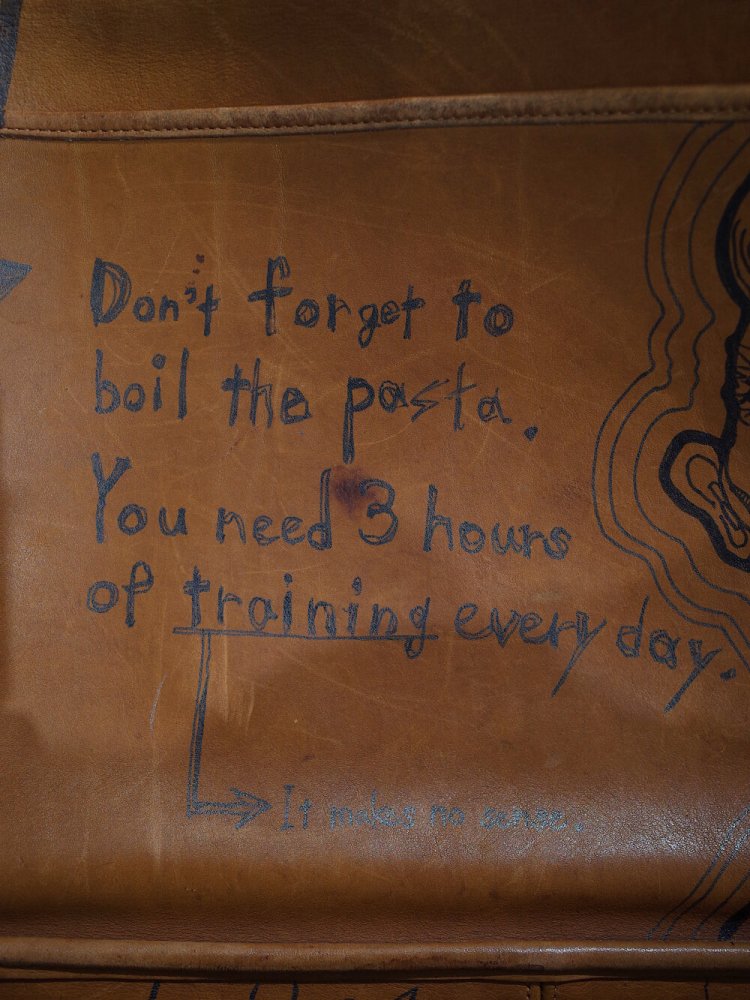 Don't forget to
boil the pasta.
You need 3 hours
of training every day.
It makes no sense.